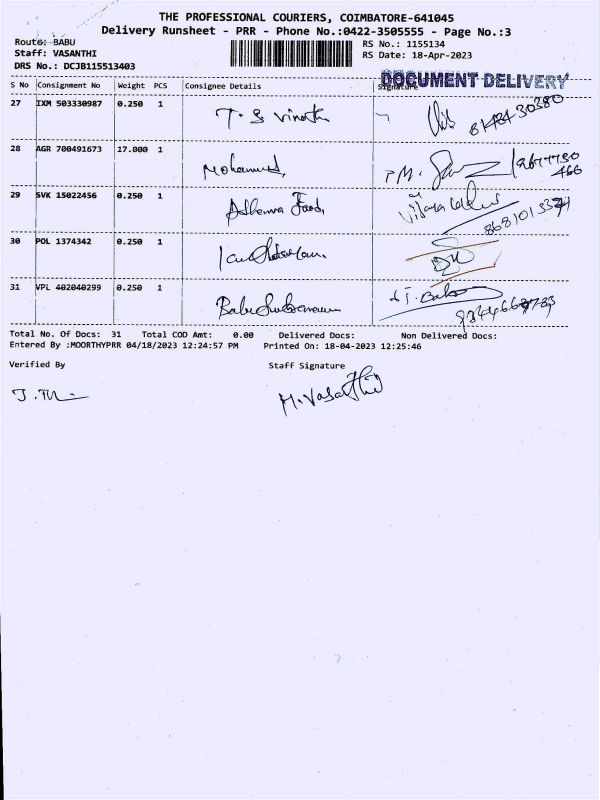 THE PROFESSIONAL COURIERS, COIMBATORE-641045
Delivery Runsheet - PRR - Phone No.:0422-3505555 - Page No.:3
Route: BABU
RS No.: 1155134
Staff: VASANTHI
RS Date: 18-Apr-2023
DRS No.: DCJB115513403
DOCUMENT DELIVERY
S No Consignment No Weight PCS Consignee Details Signature
27 IXM 503330987 0.250 1 T. S Vinoth
28 AGR 700491673 17.000 1 Mohammed,
29 SVK 15022456 0.250 1 Foods
30 POL 1374342 0.250 1
31 VPL 402040299 0.250 1 Babu T. Babu
Total No. Of Docs: 31 Total COD Amt: 0.00 Delivered Docs: Non Delivered Docs:
Entered By :MOORTHYPRR 04/18/2023 12:24:57 PM Printed On: 18-04-2023 12:25:46
Verified By Staff Signature
M. Vasanthi